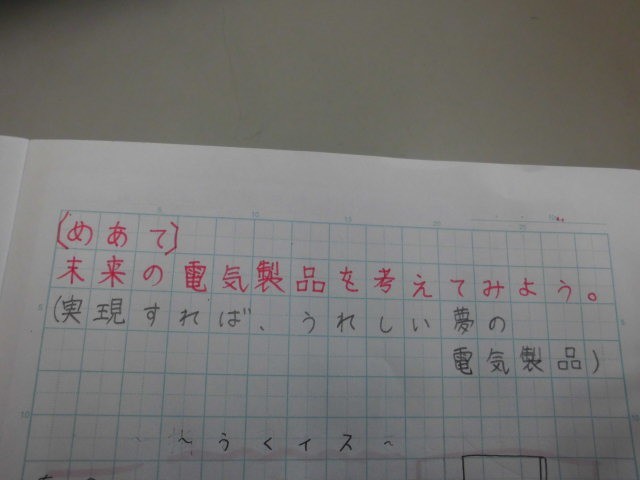 [めあて]
未来の電気製品を考えてみよう。
(実現すれば、うれしい夢の
電気製品)
~らくイス~